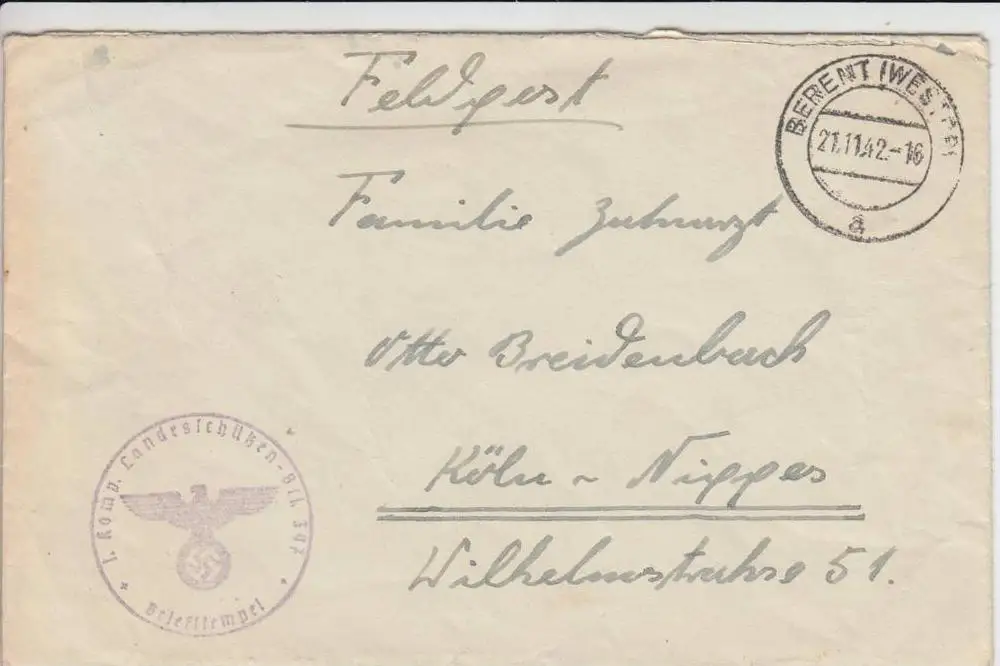 Feldpost
BERENT (WESTPR)
21.11.42.-16
a
Familie Zahnarzt
Otto Breidenbach
Köln - Nippes
Wilhelmstrahse 51.
1. Komp. Landesschützen-Btl.
Briefstempel